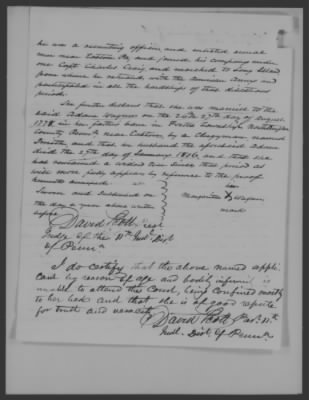 he was a recruiting officer, and enlisted several
men near Easton Pa and joined his company under
one Capt Charles Craig and marched to Long Island
from where he retreated with the American Army and
participated in all the hardships of that disastrous
period.
She further declares that she was married to the
said Adam Wagoner on the 24th 27th day of August
177 in her fathers house in Forks Township Northampton
County Penna near Easton, by a Clergyman named
and that her husband the aforesaid Adam
died the 25th day of January 1816, and that she
has remained a widow ever since that period as
will more fully appear by reference to the proof
hereunto annexed
Sworn and Subscribed on
the day & year above written
before
her
Margaretta X Wagoner
mark
David Scott Prest
Judge of the 11th Judl Dist
of Penna
I do certify that the above named appli
cant by reason of age and bodily infirmity is
unable to attend the Court, being confined mostly
to her bed and that she is of good repute
for truth and veracity
David Scott Pres. 11th
Judl. Dist. of Penna